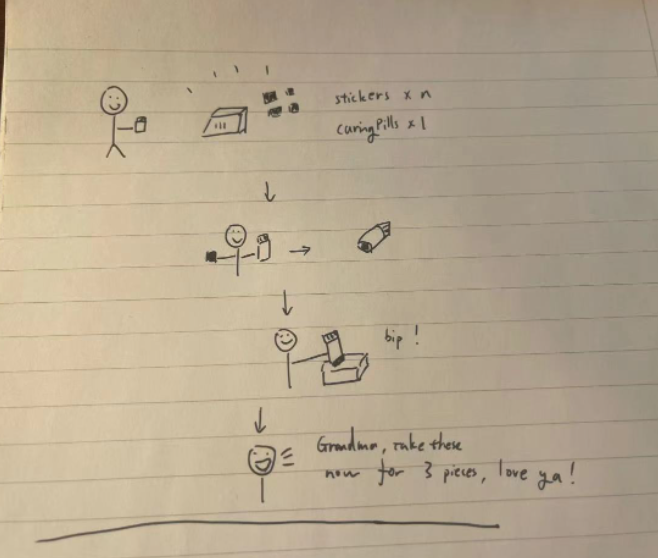 stickers x n
caringPills x 1
bip !
Grandma, take these
now for 3 pieces, love ya!